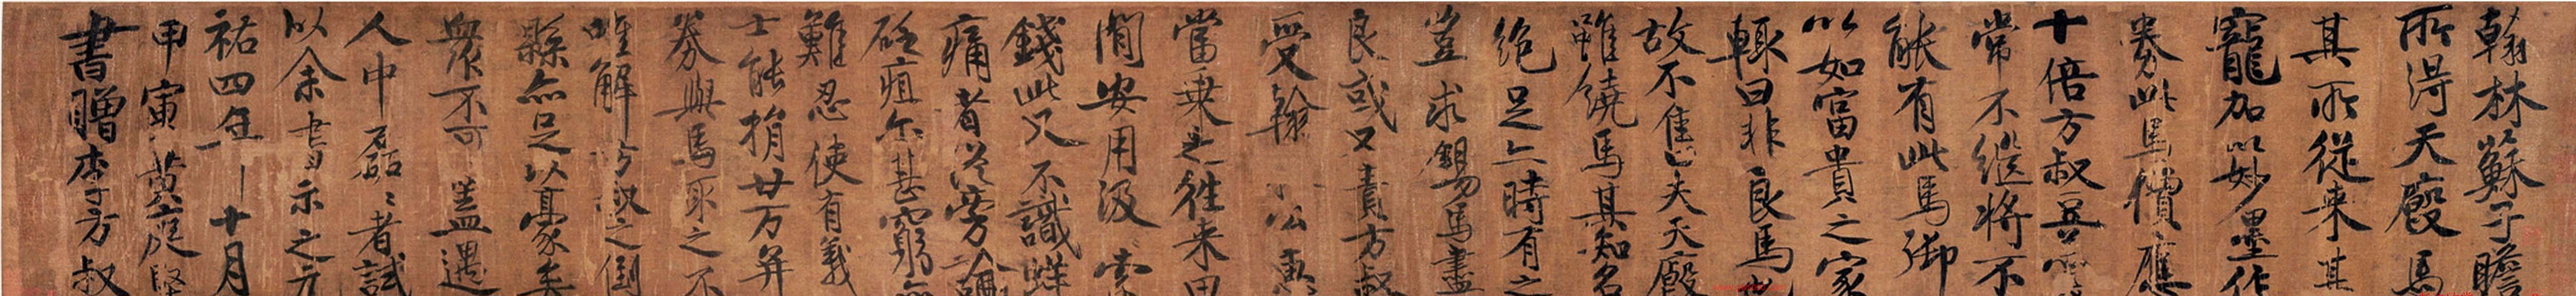 翰林蘇子瞻
所得天廄馬
其所從來甚
寵加以妙墨作
券此馬價應
十倍方叔豆羹
常不繼將不
能有此馬御
以如富貴之家
輒曰非良馬也
故不售夫天廄
雖饒馬其知名
絕足亦時有之
豈求錫馬盡
良或又責方叔
受翰 公惠
當乘之往來田
間安用汲索
錢此又不識蟬
痛者從旁論
砭疽尔甚窮亦
難忍使有義
士能捐廿万并
券與馬取之不
唯解方叔之倒
縣亦足以豪矣
衆不可蓋遇
人中磊々者試
以余書示之元
祐四年十月
甲寅黃庭堅
書贈李方叔